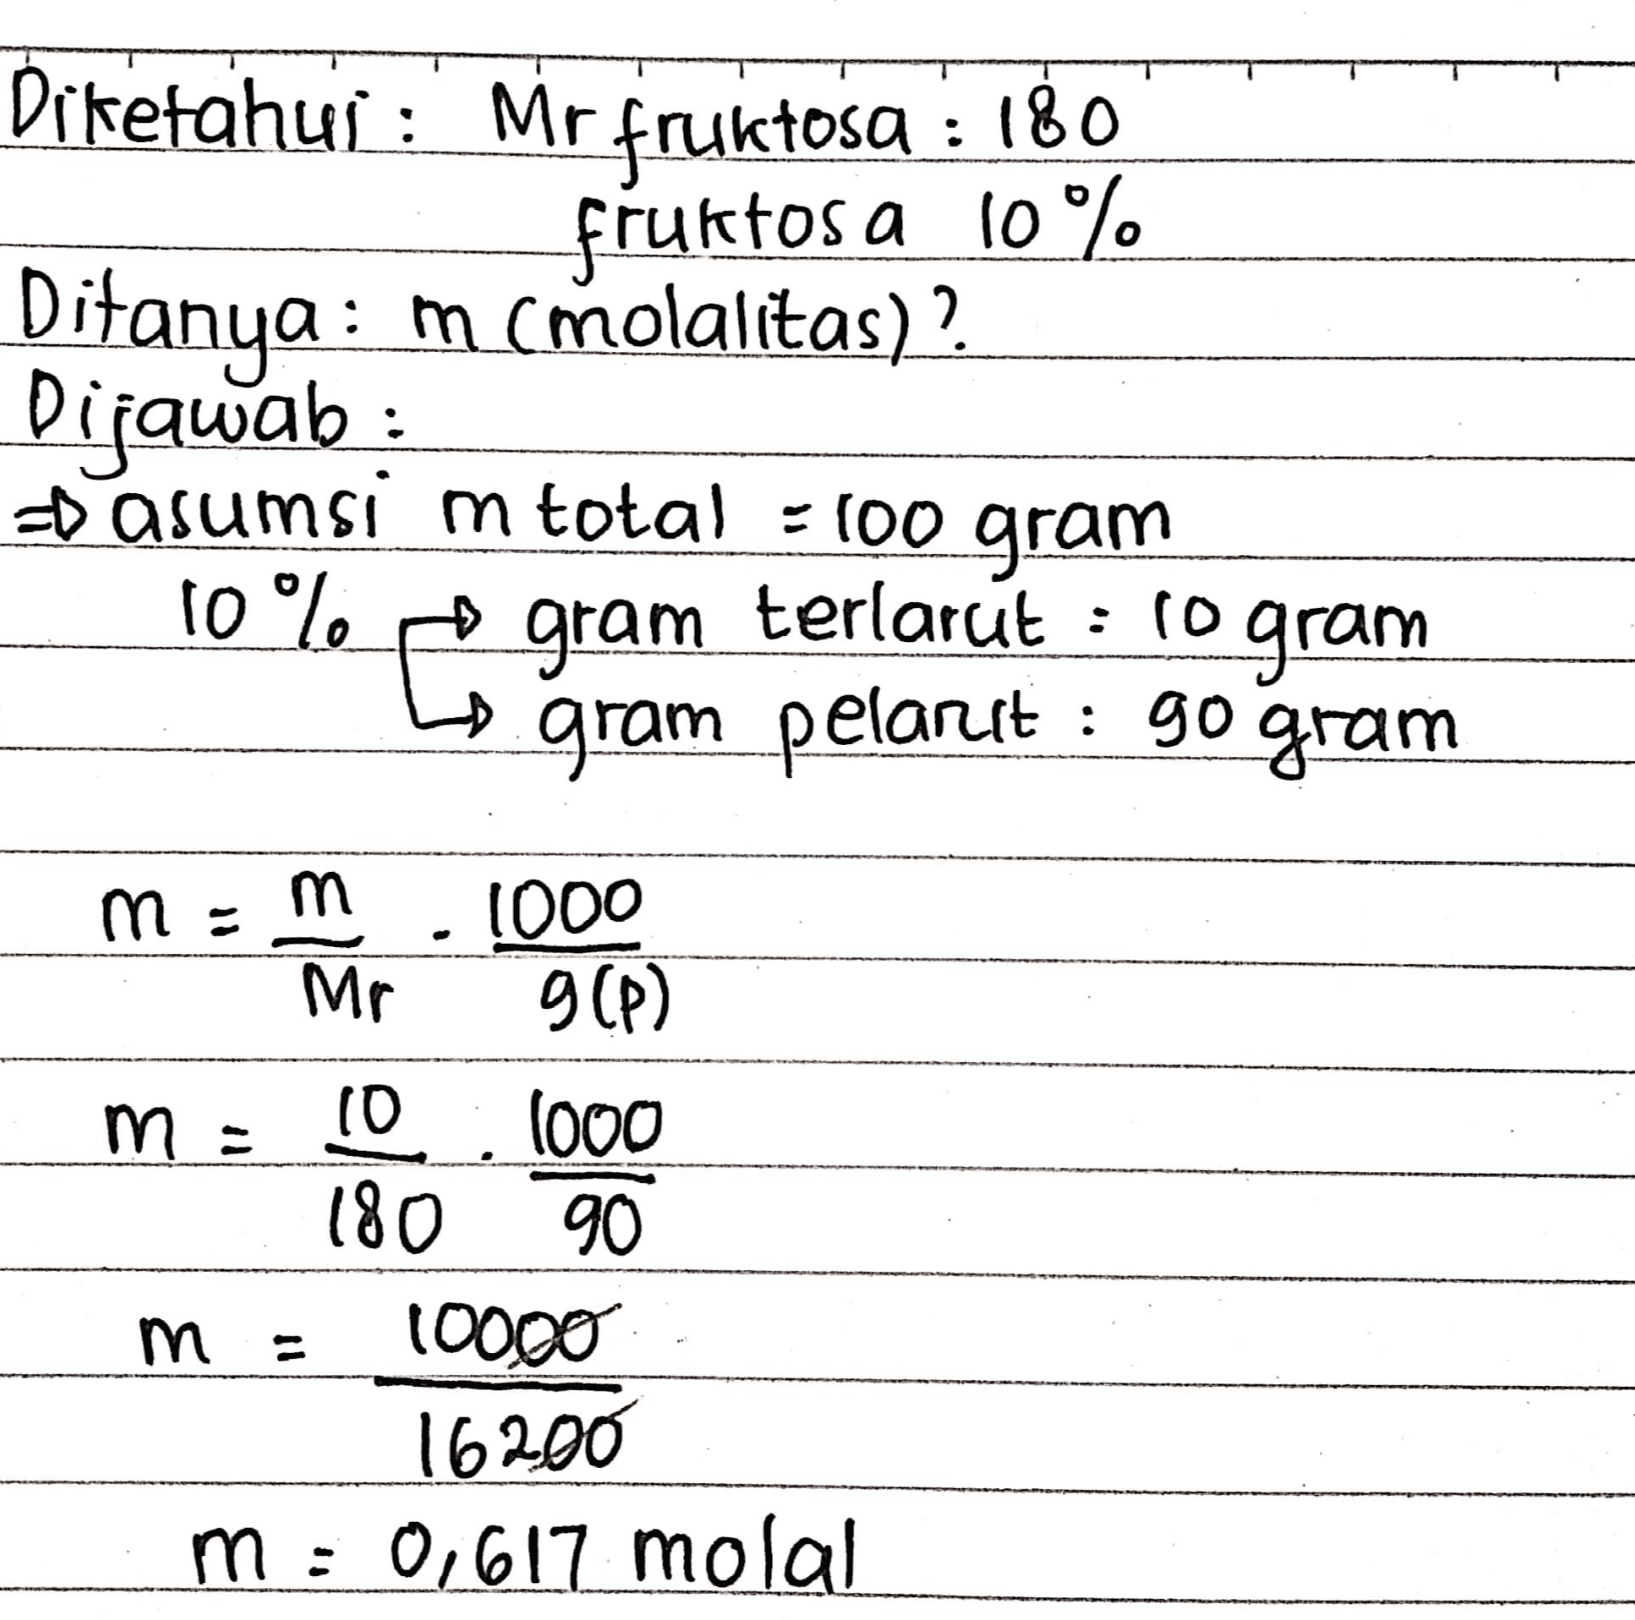 Diketahui : Mr fruktosa : 180
fruktosa 10%
Ditanya : m (molalitas)?
Dijawab :
⇒ asumsi m total = 100 gram
10% → gram terlarut : 10 gram
→ gram pelarut : 90 gram
m = m/Mr . 1000/g(p)
m = 10/180 . 1000/90
m = 10000/16200
m = 0,617 molal